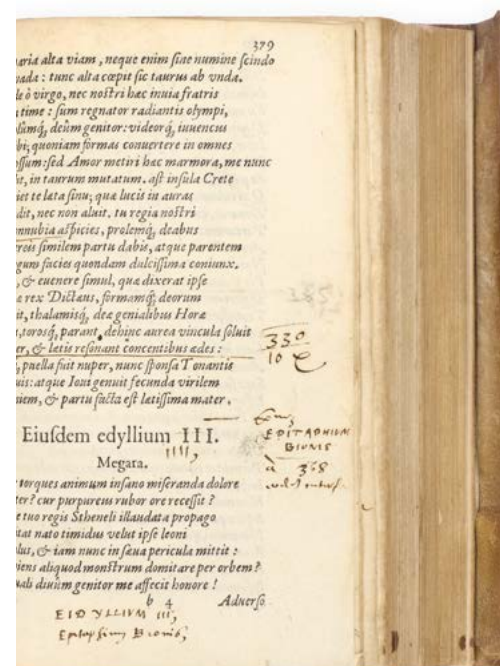 379
aria alta viam, neque enim siae numine scindo
vada : tunc alta cœpit sic taurus ab vnda.
le ô virgo, nec nostri hæc inuia fratris
time : sum regnator radiantis olympi,
lûmq́, deûm genitor: videorq́, iuuencus
bi; quoniam formas conuertere in omnes
ossum : sed Amor metiri hæc marmora, me nunc
it, in taurum mutatum. ast insula Crete
iet te læta sinu; quæ lucis in auras
dit, nec non aluit. tu regia nostri
onnubia aspicies, prolemq́, deabus
reis similem partu dabis, atque parentem
gum facies quondam dulcissima coniunx.
, & euenere simul, quæ dixerat ipse
a rex Dictæus, formamq́; deorum
it, thalamisq́, deæ genialibus Horæ
, torosq́, parant, dehinc aurea vincula soluit
er, & lætis resonant concentibus ædes :
330
10
, puella fuit nuper, nunc sponsa Tonantis
uis: atque Ioui genuit fecunda virilem
niem, & partu facta est lætissima mater.
Eiusdem edyllium III.
IIII,
EPITAPHIUM
BIONIS
à 368
Megara.
torques animum insano miseranda dolore
ter? cur purpureus rubor ore recessit ?
e tuo regis Stheneli illaudata propago
tat nato timidus velut ipse leoni
lus, & iam nunc in sæua pericula mittit :
iens aliquod monstrum domitare per orbem?
uali diuûm genitor me affecit honore !
b 4 Aduerso
EIDYLLIVM III,
Epitaphium Bionis,